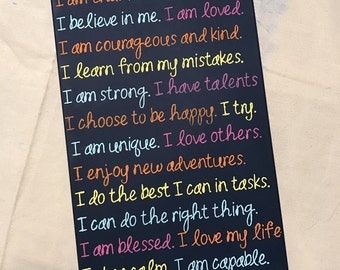 I am
I believe in me. I am loved.
I am courageous and kind.
I learn from my mistakes.
I am strong. I have talents
I choose to be happy. I try.
I am unique. I love others.
I enjoy new adventures.
I do the best I can in tasks.
I can do the right thing.
I am blessed. I love my life
calm. I am capable.